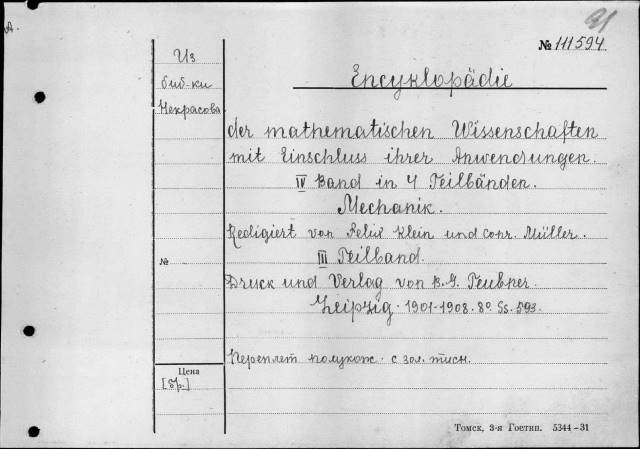 А.
91
№ 111594
Из
биб-ки
Некрасова
Encyklopädie
der mathematischen Wissenschaften
mit Einschluss ihrer Anwendungen.
IV Band in 4 Teilbänden.
Mechanik.
Redigiert von Felix Klein und Conr. Müller.
III Teilband.
№
Druck und Verlag von B. G. Teubner.
Leipzig. 1901-1908. 8º Ss. 593.
Переплет полукож. с зол. тисн.
Цена
[Бр.]
Томск, 3-я Гостип. 5344-31